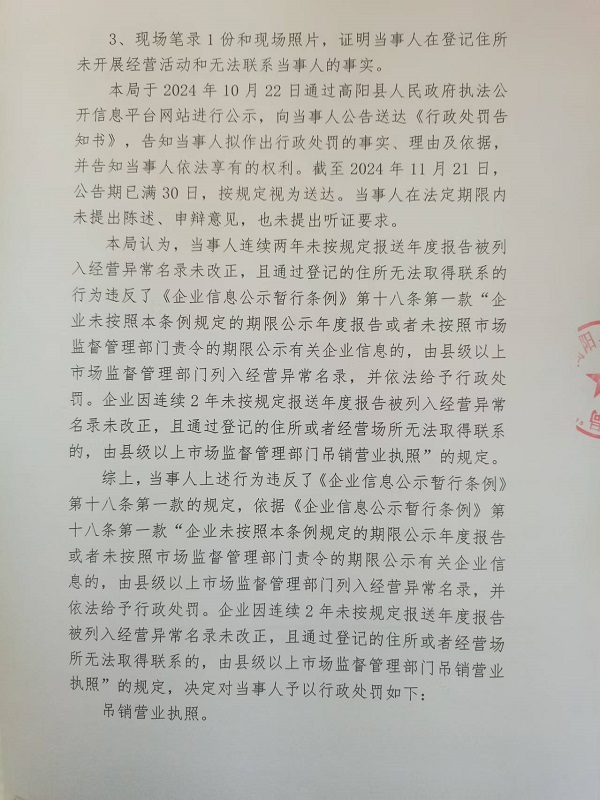 3、现场笔录1份和现场照片，证明当事人在登记住所
未开展经营活动和无法联系当事人的事实。
本局于2024年10月22日通过高阳县人民政府执法公
开信息平台网站进行公示，向当事人公告送达《行政处罚告
知书》，告知当事人拟作出行政处罚的事实、理由及依据，
并告知当事人依法享有的权利。截至2024年11月21日，
公告期已满30日，按规定视为送达。当事人在法定期限内
未提出陈述、申辩意见，也未提出听证要求。
本局认为，当事人连续两年未按规定报送年度报告被列
入经营异常名录未改正，且通过登记的住所无法取得联系的
行为违反了《企业信息公示暂行条例》第十八条第一款“企
业未按照本条例规定的期限公示年度报告或者未按照市场
监督管理部门责令的期限公示有关企业信息的，由县级以上
市场监督管理部门列入经营异常名录，并依法给予行政处
罚。企业因连续2年未按规定报送年度报告被列入经营异常
名录未改正，且通过登记的住所或者经营场所无法取得联系
的，由县级以上市场监督管理部门吊销营业执照”的规定。
综上，当事人上述行为违反了《企业信息公示暂行条例》
第十八条第一款的规定，依据《企业信息公示暂行条例》第
十八条第一款“企业未按照本条例规定的期限公示年度报告
或者未按照市场监督管理部门责令的期限公示有关企业信
息的，由县级以上市场监督管理部门列入经营异常名录，并
依法给予行政处罚。企业因连续2年未按规定报送年度报告
被列入经营异常名录未改正，且通过登记的住所或者经营场
所无法取得联系的，由县级以上市场监督管理部门吊销营业
执照”的规定，决定对当事人予以行政处罚如下：
吊销营业执照。